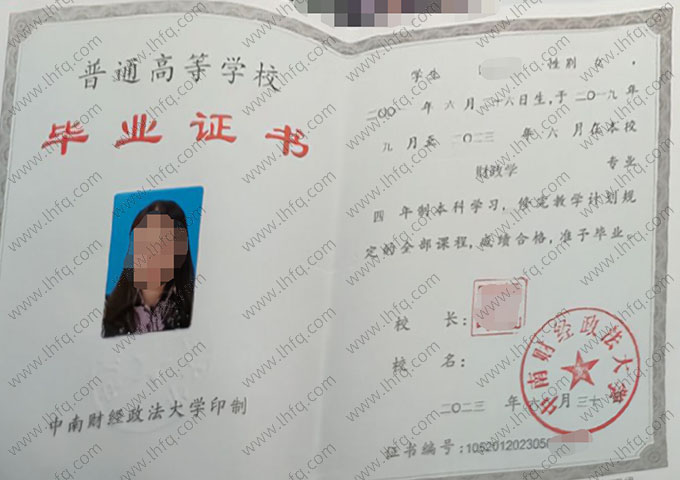 普通高等学校
毕业证书
中南财经政法大学印制
学生 性别 ,
二〇〇 年 六 月 十六日生,于二〇一九年
九 月至 二〇二三 年 六 月在本校
财政学 专业
四 年制本科学习,修完教学计划规
定的全部课程,成绩合格,准予毕业。
校 长:
校 名:
中南财经政法大学
二〇二三 年 六 月 三十
证书编号:105201202305
www.lhfq.com